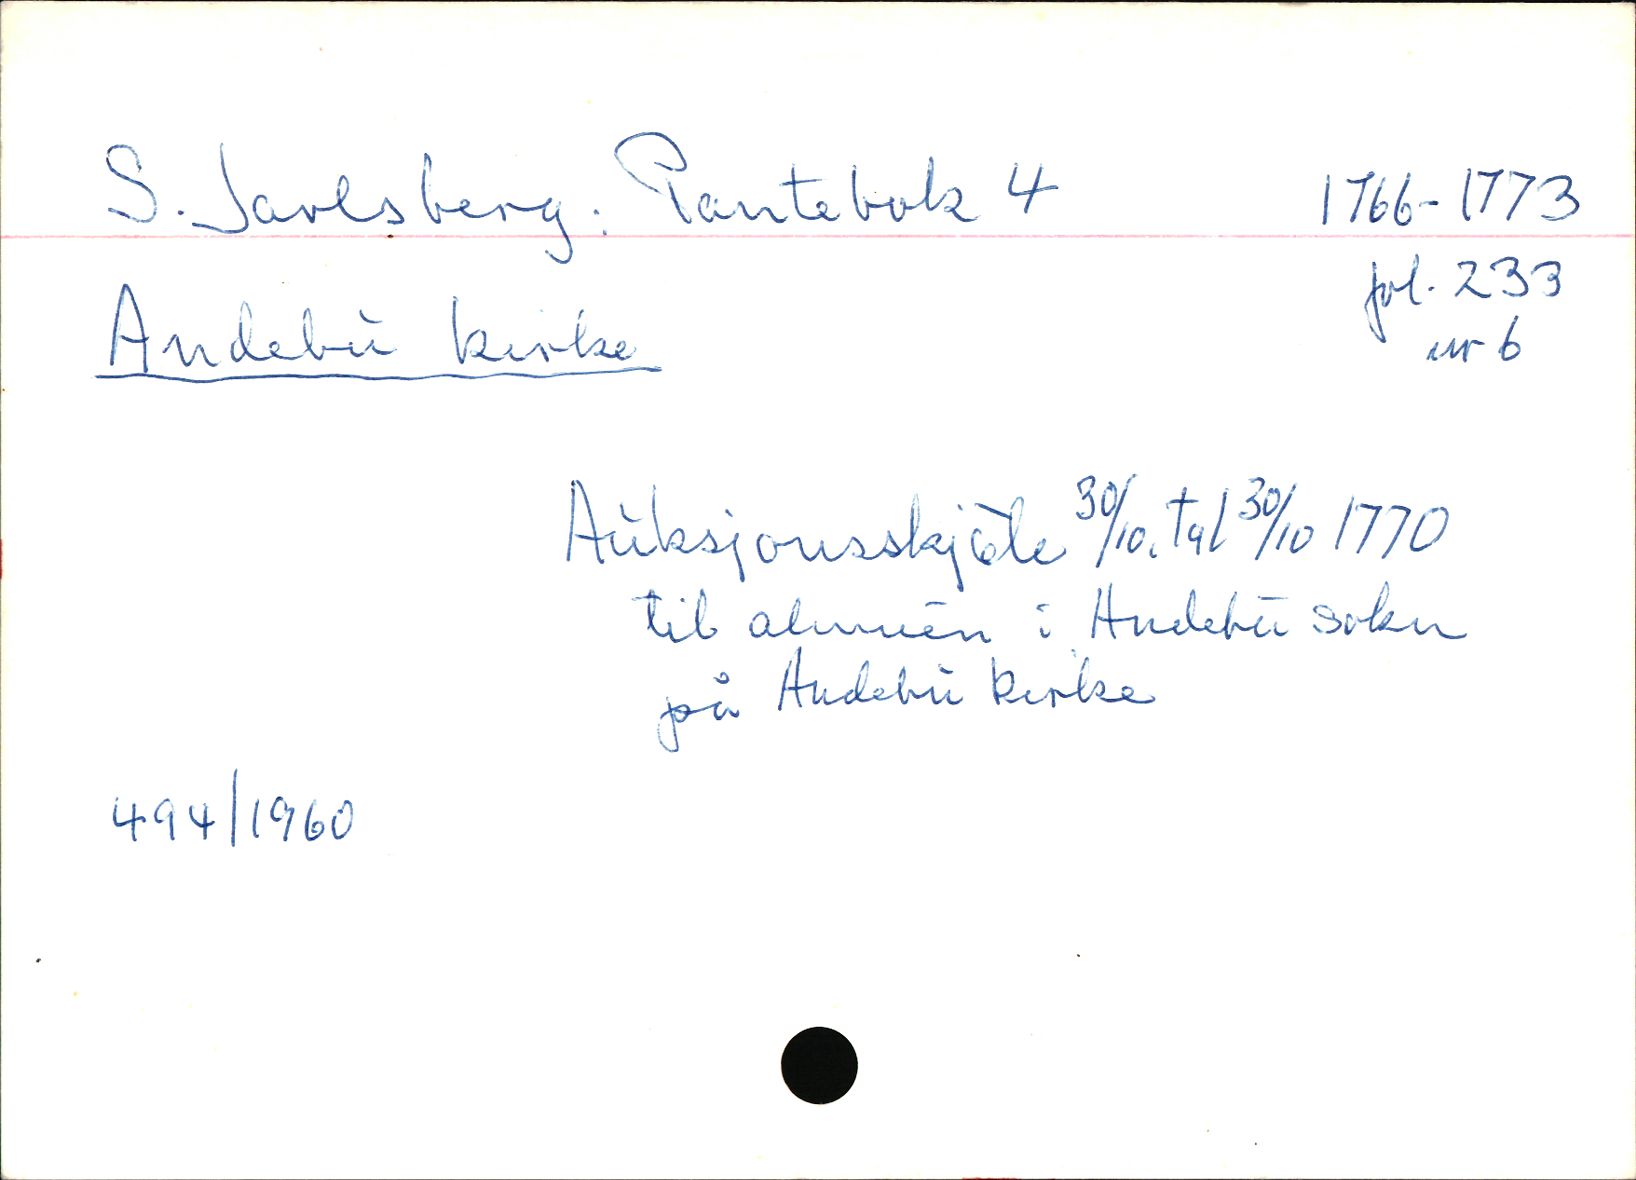 S. Jarlsberg. Pantebok 4 1766-1773
fol. 233
Andebu kirke nr 6
Auksjonsskjøte 30/10. tgl 30/10 1770
til almuen i Andebu sokn
på Andebu kirke
494/1960